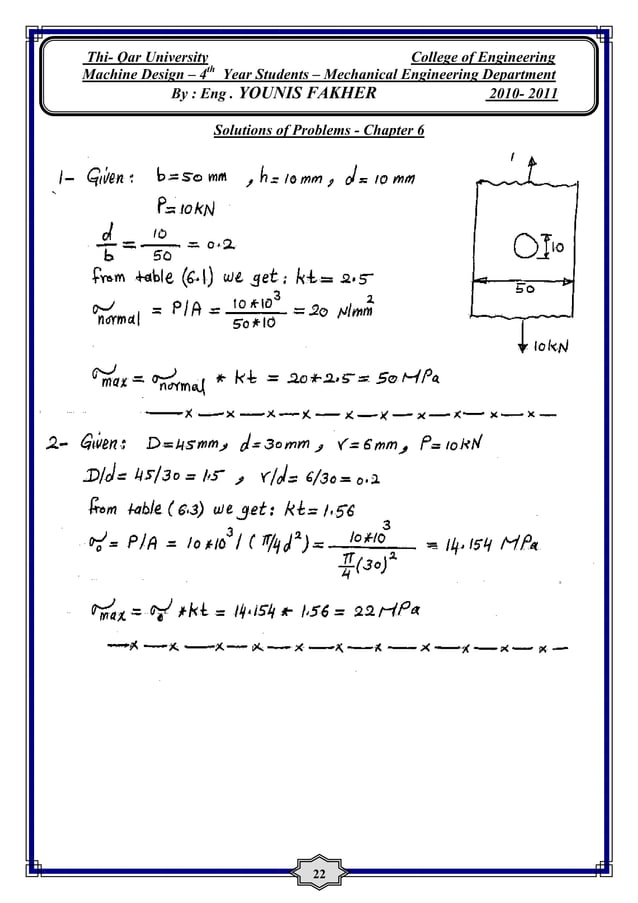 Thi- Qar University College of Engineering
Machine Design – 4th Year Students – Mechanical Engineering Department
By : Eng . YOUNIS FAKHER 2010- 2011
Solutions of Problems - Chapter 6
1- Given: b=50 mm , h=10mm, d=10 mm
P=10KN
d/b = 10/50 = 0.2
from table (6.1) we get: kt = 2.5
σnormal = P/A = 10*10^3 / 50*10 = 20 N/mm^2
σmax = σnormal * kt = 20*2.5 = 50 MPa
10
50
10KN
2- Given: D=45mm, d=30mm, r=6mm, P=10KN
D/d = 45/30 = 1.5 , r/d = 6/30 = 0.2
from table (6.3) we get: kt = 1.56
σo = P/A = 10*10^3 / (π/4 d^2) = 10*10^3 / π/4 (30)^2 = 14.154 MPa
σmax = σo *kt = 14.154 * 1.56 = 22 MPa
22